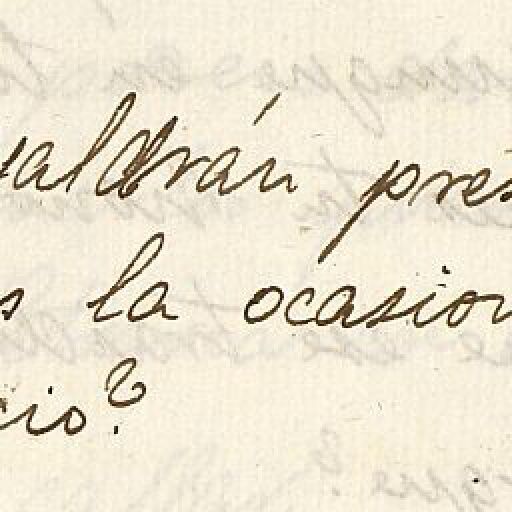 valdrán pres
s la ocasion
cio?